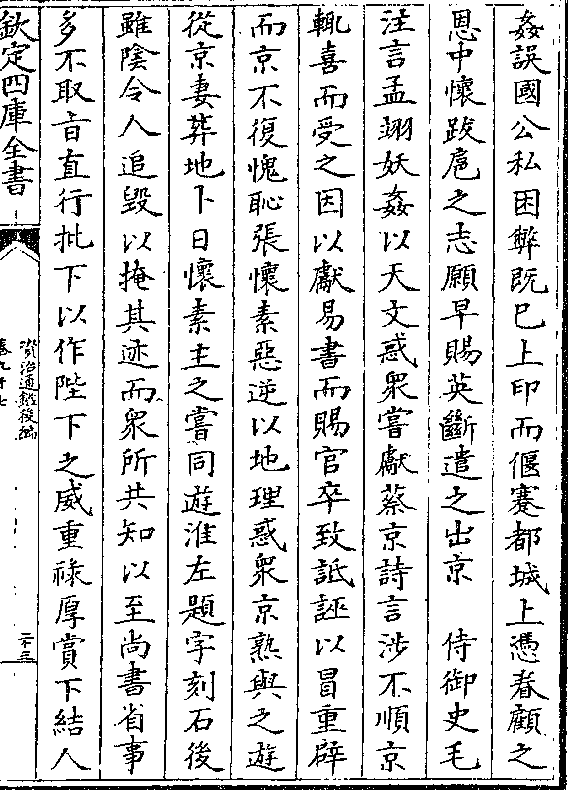 姦誤國公私困弊既已上印而偃蹇都城上憑眷顧之
恩中懷跋扈之志願早賜英斷遣之出京　侍御史毛
注言孟翊妖姦以天文惑衆嘗獻蔡京詩言涉不順京
輒喜而受之因以獻易書而賜官卒致詆誣以冒重辟
而京不復愧恥張懷素惡逆以地理惑衆京熟與之遊
從京妻葬地卜日懷素主之嘗同遊淮左題字刻石後
雖陰令人追毀以掩其迹而衆所共知以至尚書省事
多不取旨直行批下以作陛下之威重祿厚賞下結人
欽定四庫全書
資治通鑑後編
卷九十七
二十三